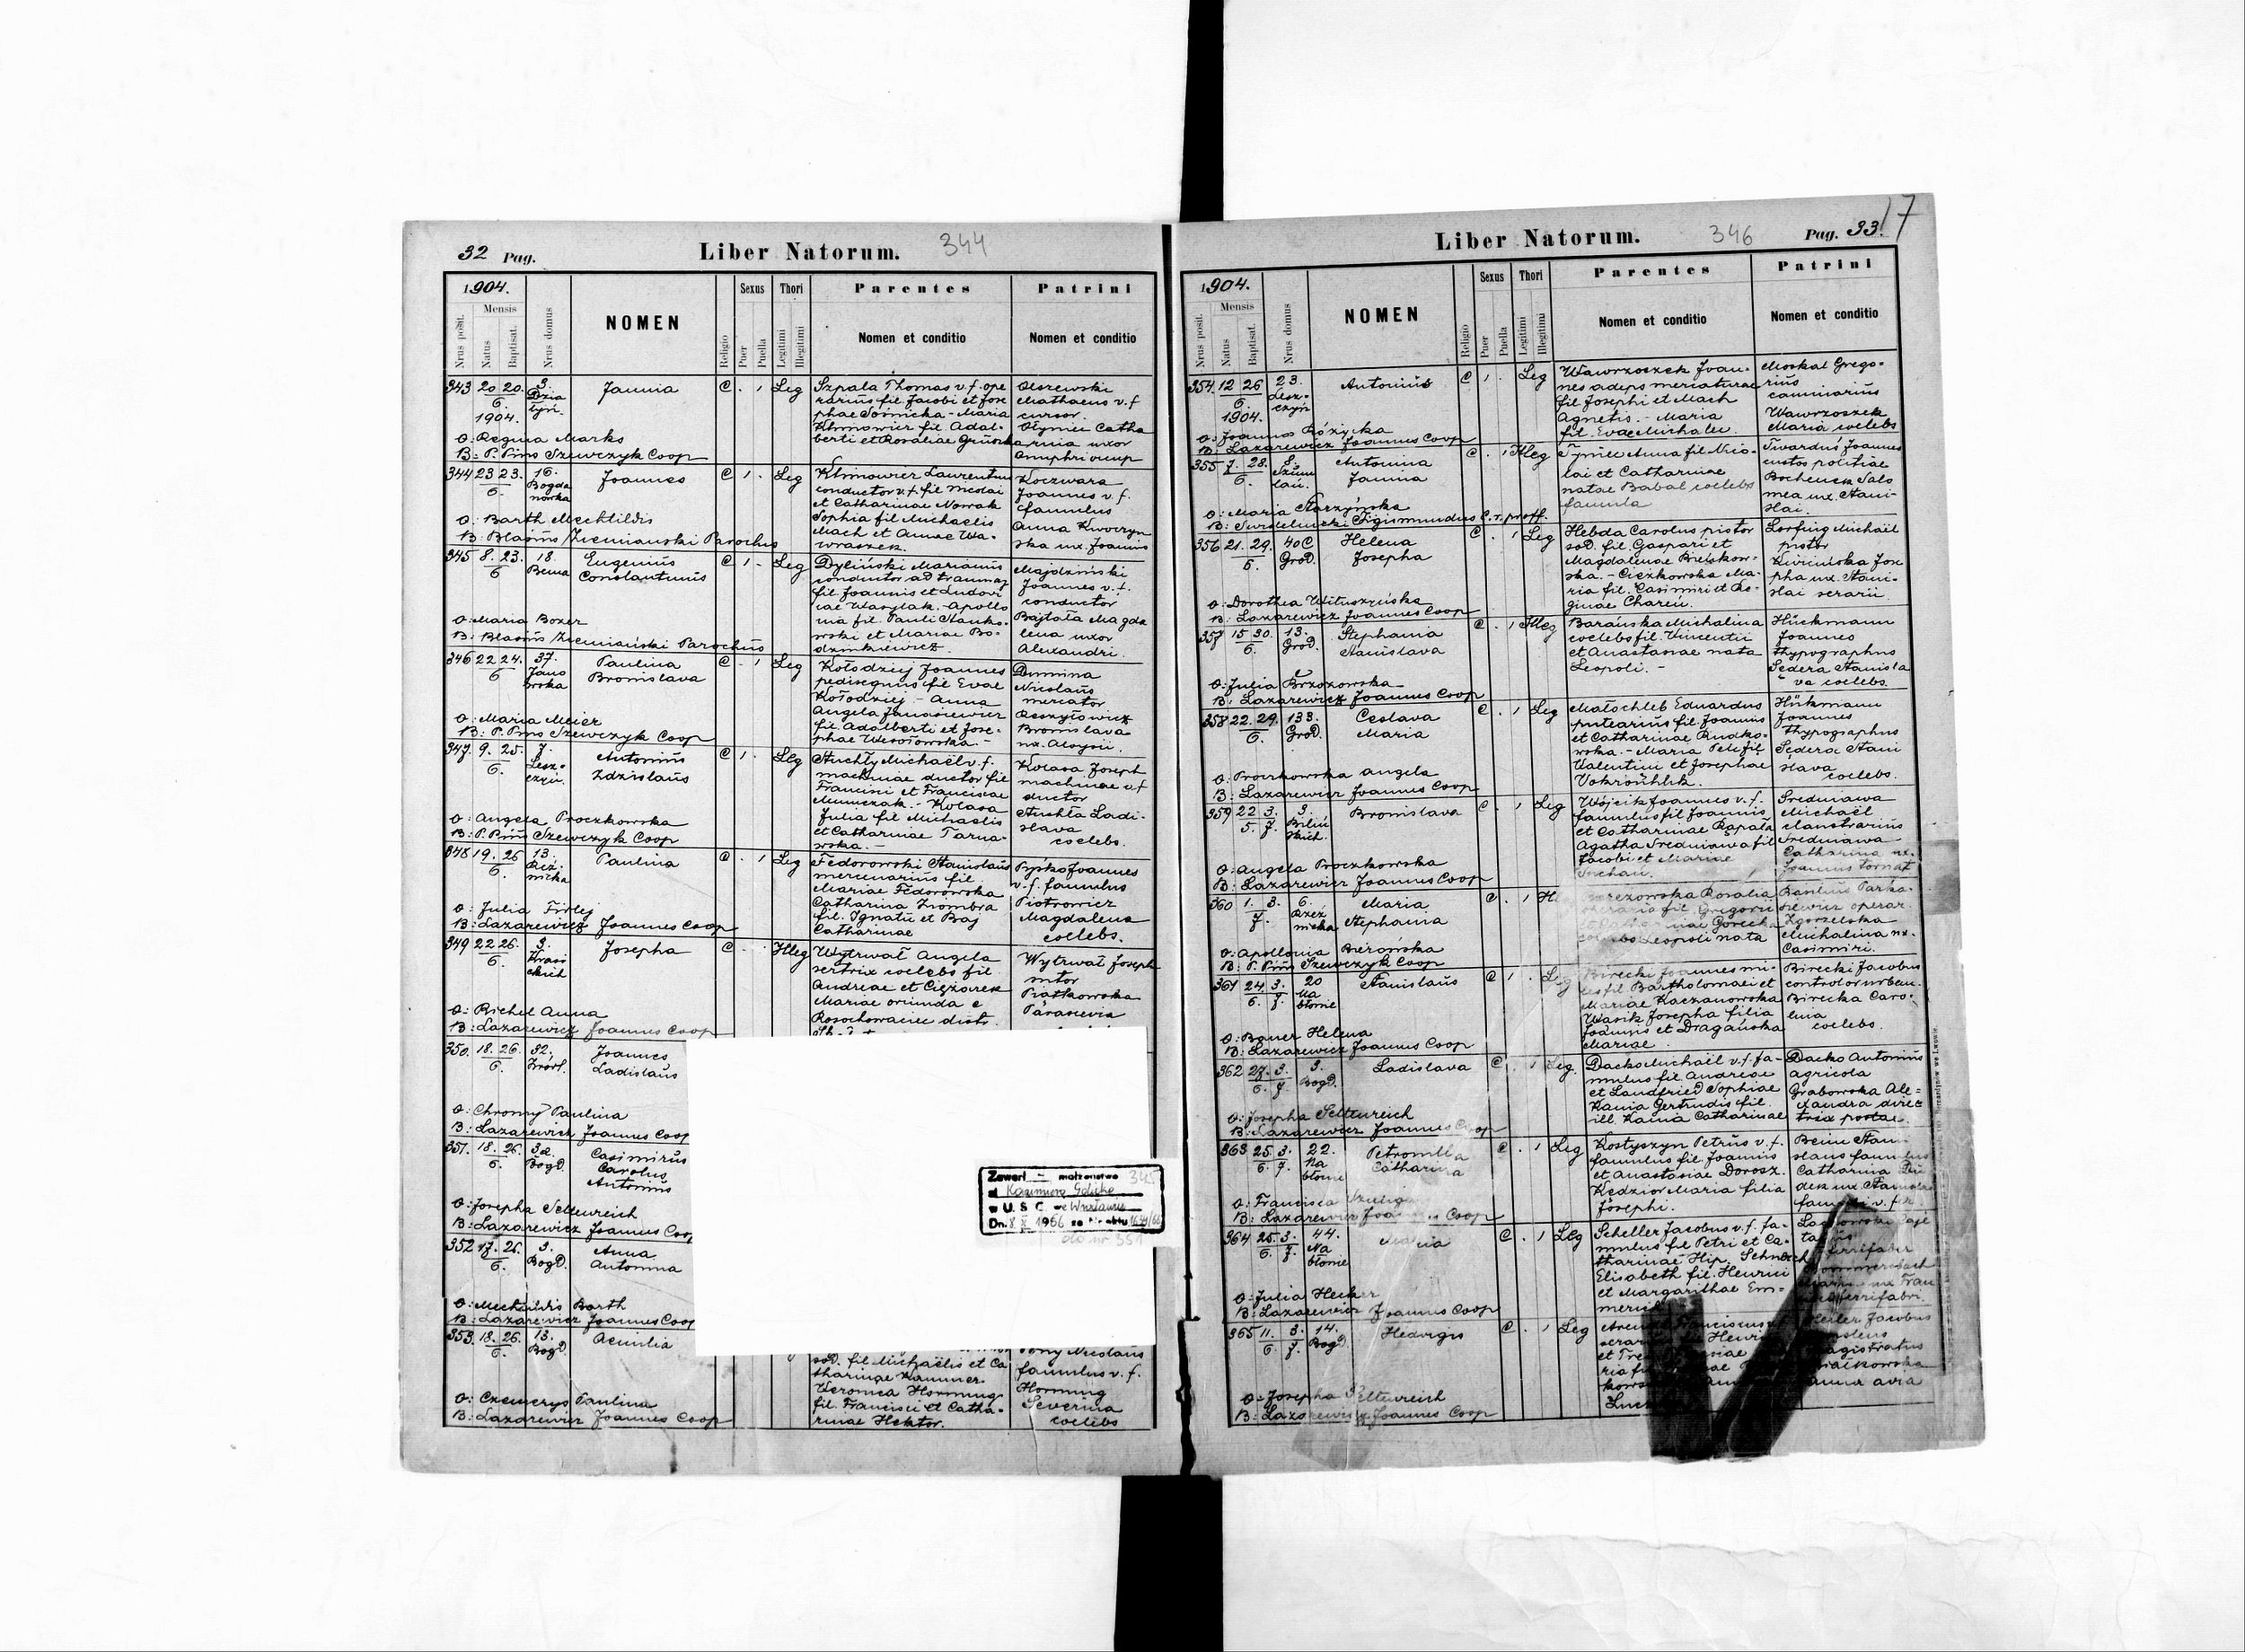 32 Pag.
Liber Natorum.
344
1904.
Nrus posit.
Mensis
Natus
Baptisat.
Nrus domus
NOMEN
Religio
Sexus
Puer
Puella
Thori
Legitimi
Illegitimi
Parentes
Nomen et conditio
Patrini
Nomen et conditio
343 20. 20. 3. Janina C . 1 Leg
6.
1904.
Szpala Thomas v. f. ope
rarius fil Jacobi et Jose
phae Sośnicka - Maria
Klimowicz fil Adal-
berti et Rosaliae
Olszewski
Mathaeus v. f
cursor.
Olynicz Catha
rina uxor
O: Regina Marks
B: P. Pius Szewczyk Coop
344 23 23. 16. Joannes C 1 . Leg
6. Bogda
nówka
Klimowicz Laurentius
conductor v. f. fil Nicolai
et Catharinae Nowak
Sophia fil Michaelis
Mach et Annae Wa-
wraszek.
Koczwara
Joannes v. f.
famulus
Anna
ska ux. Joannis
O: Barth Mechtildis
B: Blasius Ziemianski Parochus
345 8. 23. 18. Eugenius C 1 - Leg
6 Bema Constantinus
Dyliński Marianus
conductor ad tramvay
fil Joannis et Ludovi
cae Wasylak. - Apollo
nia fil. Pauli Stanko-
wski et Mariae Bo-
dzinkiewicz.
Majdziński
Joannes v. f.
conductor
Bajtala Magda
lena uxor
Alexandri.
O: Maria Boxer
B: Blasius Ziemiański Parochus
346 22 24. 37. Paulina C . 1 Leg
6 Jano Bronislava
wska
Kołodziej Joannes
pedisequus fil Evae
Kołodziej - Anna
Angela Janosiewicz
fil. Adalberti et Jose-
phae Wesołowska. -
Dumina
Nicolaus
mercator
Bronislava
ux. Aloysii.
O: Maria Meier
B: P. Pius Szewczyk Coop
347. 9. 25. 7. Antonius C 1 . Leg
6. Lesz- Zdzislaus
czyń.
Stuchły Michaël v. f.
machinae ductor fil
Francisci et Franciscae
Kolasa
Julia fil Michaelis
et Catharinae Tarna-
wska. -
Kolasa Joseph
machinae v f
ductor
Stuchła Ladi-
slava
coelebs.
O: Angela Proczkowska
B: P. Pius Szewczyk Coop
348 19. 26 13. Paulina C . 1 Leg
6. Rzeź-
nicka
Fedorowski Stanislaus
mercenarius fil.
Mariae Fedorowska
Catharina Ziombra
fil. Ignatii et Baj
Catharinae
Pyśko Joannes
v. f. famulus
Piotrowicz
Magdalena
coelebs.
O: Julia Firlej
B: Lazarewicz Joannes Coop
349 22 26. 3. Josepha C - Illeg
6. Krasi
ckich
Wytrwał Angela
sertrix coelebs fil.
Andreae et Ciężarek
Mariae oriunda e
Rosochowaciec distr.
Wytrwał Joseph
sutor
Piatkowska
Parascevia
O: Richel Anna
B: Lazarewicz Joannes Coop
350. 18. 26. 32. Joannes
6. Źródl. Ladislaus
O: Chromy Paulina
B: Lazarewicz Joannes Coop
351. 18. 26. 3a. Casimirus
6. Bogd. Carolus
Antonius
O: Josepha Seltenreich
B: Lazarewicz Joannes Coop
352 17. 26. 3. Anna
6. Bogd. Antonina
O: Mechtildis Barth
B: Lazarewicz Joannes Coop
353. 18. 26. 13. Aemilia
6. Bogd.
sod. fil Michaëlis et Ca
tharinae Kammer.
Veronica Hornung
fil. Francisci et Catha-
rinae Hektor.
Nicolaus
famulus v. f.
Hornung
Severina
coelebs
O: Czemerys Paulina
B: Lazarewicz Joannes Coop
Zawarł — małżeństwo 345
Kazimierz
w U. S. C. we Wrocławiu
Dn. 8 X 1966 za Nr aktu
do nr 351
Liber Natorum.
346
Pag. 33.
17
1904.
Nrus posit.
Mensis
Natus
Baptisat.
Nrus domus
NOMEN
Religio
Sexus
Puer
Puella
Thori
Legitimi
Illegitimi
Parentes
Nomen et conditio
Patrini
Nomen et conditio
354. 12 26 23. Antonius C 1 . Leg
6. Lesz-
1904. czyń
Wawrzoszek Joan-
nes adeps mercaturae
fil Josephi et Mach
Agnetis. - Maria
fil. Evae Michalec.
Moskal Grego-
rius
caminarius
Wawrzoszek
Maria coelebs
O: Joanna Różycka
B: Lazarewicz Joannes Coop
355 7. 28. 8. Antonina C . 1 Illeg
6. Janina
Tyniec Anna fil Nico-
lai et Catharinae
natae Babal coelebs
famula
Twarduś Joannes
custos politiae
Bochenek Salo
mea ux. Stani-
slai.
O: Maria Starzyńska
B: Sigismundus C. r. proff.
356 21. 29. 40C Helena C . 1 Leg
5. Grod. Josepha
Hebda Carolus pistor
sod. fil Gaspari et
Magdalenae Bieńkow-
ska. - Ciezkowska Ma-
ria fil. Casimiri et Re-
ginae Charen.
Lorfing Michaël
pistor
Jose
pha ux. Stani-
slai serarii.
O: Dorothea Wituszyńska
B: Lazarewicz Joannes Coop
357 15 30. 13. Stephania C . 1 Illeg
6. Grod. Stanislava
Barańska Michalina
coelebs fil. Vincentii
et Anastasiae nata
Leopoli. -
Hückmann
Joannes
thypographus
Sedera Stanisla
va coelebs.
O: Julia Brzozowska
B: Lazarewicz Joannes Coop
358 22. 29. 133. Ceslava C . 1 Leg
6. Grod. Maria
Małochleb Eduardus
putearius fil Joannis
et Catharinae Rudko-
wska. - Maria Pele fil
Valentini et Josephae
Vokrouhlik.
Hükmann
Joannes
thypographus
Sedera Stani
slava
coelebs.
O: Proczkowska Angela
B: Lazarewicz Joannes Coop
359 22 3. 3. Bronislava C . 1 Leg
5. 7. Biliń
skich.
Wójcik Joannes v. f.
famulus fil Joannis
et Catharinae Rapała
Agatha Sredniawa fil
Jacobi et Mariae
Suchan.
Sredniawa
Michaël
claustrarius
Sredniawa
Catharina ux.
Joannis
O: Angela Proczkowska
B: Lazarewicz Joannes Coop
360 1. 3. 6. Maria C . 1
7. Rzeź Stephania
nicka
Rosalia
fil. Gregorii
Gorecka
Leopoli nata
Basilius Parka-
siewicz operar.
Zgorzelska
Michalina ux.
Casimiri.
O: Apollonia Bierowska
B: P. Pius Szewczyk Coop
361 24. 3. 20 Stanislaus C 1 . Leg
6. 7. Na
błonie
Birecki Joannes mi-
les fil Bartholomaei et
Mariae Kaczanowska
Wasik Josepha filia
Joannis et Dragańska
Mariae.
Birecki Jacobus
controlor urban.
Birecka Caro-
lina
coelebs.
O: Bauer Helena
B: Lazarewicz Joannes Coop
362 27. 3. 3. Ladislava C . 1 Leg.
6. 7. Bogd.
Dacko Michaël v. f. fa-
mulus fil. Andreae
et Landfried Sophiae
Kania Gertrudis fil.
ill. Kania Catharinae
Dacko Antonius
agricola
Grabowska Ale=
xandra direc
trix postae.
O: Josepha Seltenreich
B: Lazarewicz Joannes Coop
363 25. 3. 22. Petronilla C . 1 Leg
6. 7. Na Catharina
błonie
Kostyszyn Petrus v. f.
famulus fil. Joannis
et Anastasiae Dorosz.
Kędzior Maria filia
Josephi.
Stani
slaus famulus
Catharina
dek ux. Stanislai
famuli v. fer
O: Francisca
B: Lazarewicz Joannes Coop
364 25. 3. 44. Maria C . 1 Leg
6. 7. Na
błonie
Scheller Jacobus v. f. fa-
mulus fil Petri et Ca-
tharinae Hip. Schnech
Elisabeth fil. Henrici
et Margarithae Em-
ferrifaber
ux Fran
ferrifabri.
O: Julia Hecker
B: Lazarewicz Joannes Coop
365 11. 3. 14. Hedvigis C . 1 Leg
6. 7. Bogd.
Franciscus
Henri
Jacobus
magistratus
O: Josepha Seltenreich
B: Lazarewicz Joannes Coop